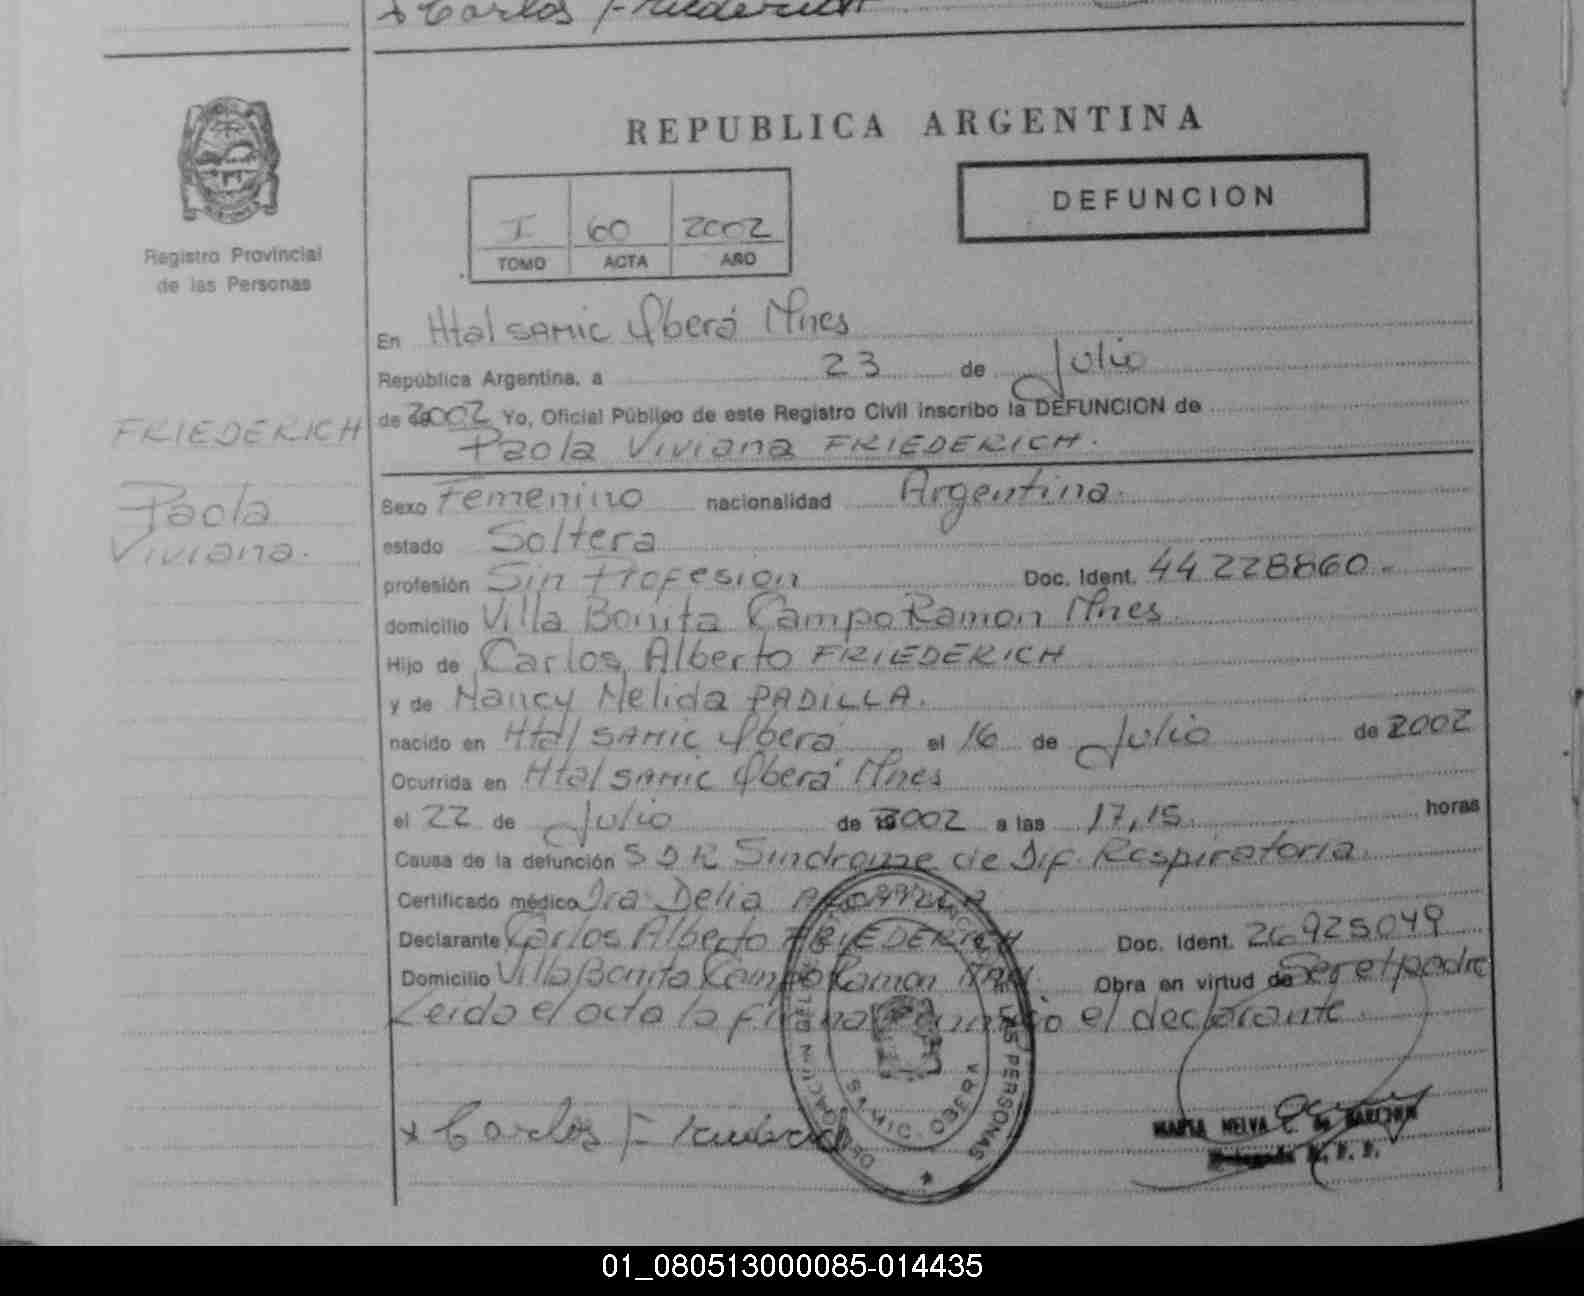 x Carlos Friederich
REPUBLICA ARGENTINA
DEFUNCION
I 60 2002
TOMO ACTA AÑO
Registro Provincial
de las Personas
En Htal SAMIC Oberá Mnes
República Argentina, a 23 de Julio
de 2002 Yo, Oficial Público de este Registro Civil inscribo la DEFUNCION de
Paola Viviana FRIEDERICH.
FRIEDERICH
Paola
Viviana.
Sexo Femenino nacionalidad Argentina.
estado Soltera
profesión Sin Profesion Doc. Ident. 44.228860.-
domicilio Villa Bonita Campo Ramon Mnes
Hijo de Carlos Alberto FRIEDERICH
y de Nancy Nelida PADILLA.
nacido en Htal SAMIC Oberá el 16 de Julio de 2002
Ocurrida en Htal SAMIC Oberá Mnes
el 22 de Julio de 2002 a las 17,15 horas
Causa de la defunción S D R Sindrome de Dif. Respiratoria.
Certificado médico Dra. Delia
Declarante Carlos Alberto FRIEDERICH Doc. Ident. 26.925049
Domicilio Villa Bonita Campo Ramon Obra en virtud de Ser el padre
Leida el acta la firma conmigo el declarante
x Carlos Friederich
SAMIC OBERA
DE LAS PERSONAS
MARIA NELVA
Delegada R. P. P.
01_080513000085-014435